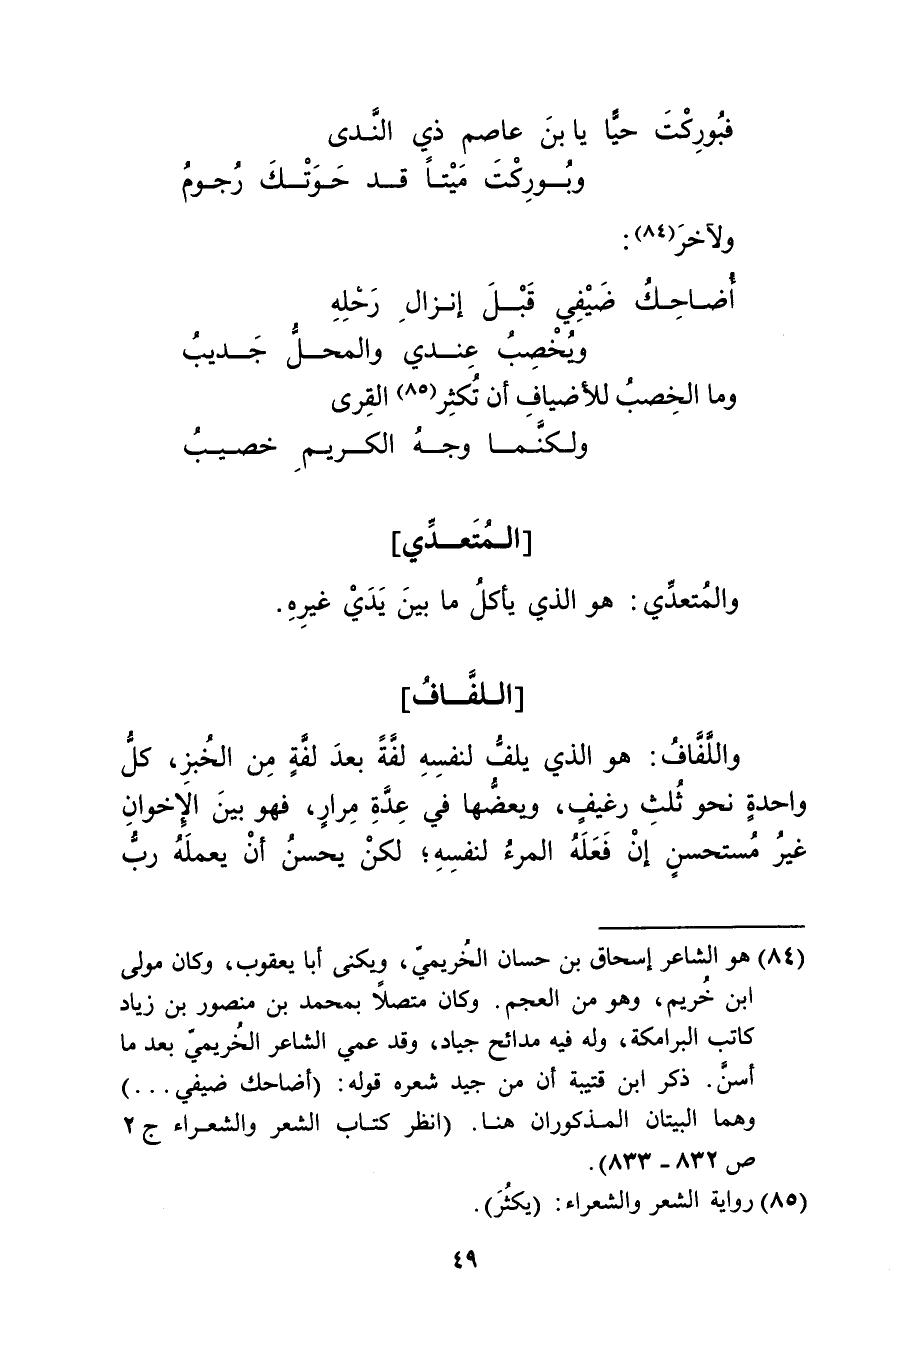 فبُورِكْتَ حيًّا يا بنَ عاصم ذي النَّدى
وبُـوركْتَ مَيْتـاً قـد حَـوَتْـكَ رُجـومُ
ولآخرَ(٨٤):
أُضـاحِـكُ ضَيْفِي قَبْـلَ إنـزالِ رَحْلِهِ
ويُخْصِبُ عِنـدي والمحـلُّ جَـديبُ
وما الخِصبُ للأضيافِ أن تُكثِر(٨٥) القِرى
ولـكنَّمـا وجـهُ الكـريـمِ خصيـبُ
[المُتَعـدِّي]
والمُتعدِّي: هو الذي يأكلُ ما بينَ يَدَيْ غيرِهِ.
[اللفَّـافُ]
واللَّفَّافُ: هو الذي يلفُّ لنفسِهِ لفَّةً بعدَ لفَّةٍ مِن الخُبزِ، كلُّ
واحدةٍ نحو ثُلثِ رغيفٍ، ويعضُّها في عِدَّةِ مِرارٍ، فهو بينَ الإِخوانِ
غيرُ مُستحسنٍ إنْ فَعَلَهُ المرءُ لنفسِهِ؛ لكنْ يحسنُ أنْ يعملَهُ ربُّ
(٨٤) هو الشاعر إسحاق بن حسان الخُريميّ، ويكنى أبا يعقوب، وكان مولى
ابن خُريم، وهو من العجم. وكان متصلاً بمحمد بن منصور بن زياد
كاتب البرامكة، وله فيه مدائح جياد، وقد عمي الشاعر الخُريميّ بعد ما
أسنَّ. ذكر ابن قتيبة أن من جيد شعره قوله: (أضاحك ضيفي...)
وهما البيتان المـذكوران هنـا. (انظر كتـاب الشعر والشعـراء ج ٢
ص ٨٣٢ - ٨٣٣).
(٨٥) رواية الشعر والشعراء: (يكثُرَ).
٤٩